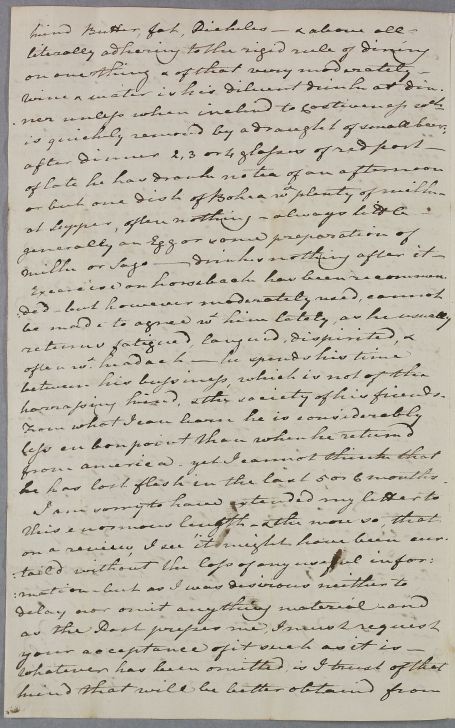 kind Butter, fat, Pickles — & above all —
literally adhering to the rigid rule of dining
on one thing & of that very moderately —
wine & water is his diluent drink at din-
ner unless when inclined to Costiveness wch
is quickly removed by a draught of small beer,
after dinner 2, 3 or 4 glasses of red port —
of late he has drank no tea of an afternoon
or but one dish of Bohea wt plenty of milk —
at Supper, often nothing — always little —
generally an Egg or some preparation of
milk or Sago — drinks nothing after it —
Exercise on horseback has been recommen-
ded — but however moderately used, cannot
be made to agree wt him lately, as he usually
returns fatigued, languid, dispirited, &
often wt headach — he spends his time
between his bussiness, which is not of the
harrassing kind, & the society of his friends.
From what I can learn he is considerably
less en bon point than when he returned
from america — yet I cannot think that
he has lost flesh in the last 5 or 6 months.
I am sorry to have extended my letter to
this enormous length, & the more so, that
on a review, I see it might have been cur-
:taild without the loss of any usefull infor:
:mation — but as I was desirous neither to
delay nor omit anything material and
as the Post presses me I must request
your acceptance of it such as it is —
whatever has been omitted is I trust of that
kind that will be better obtained from